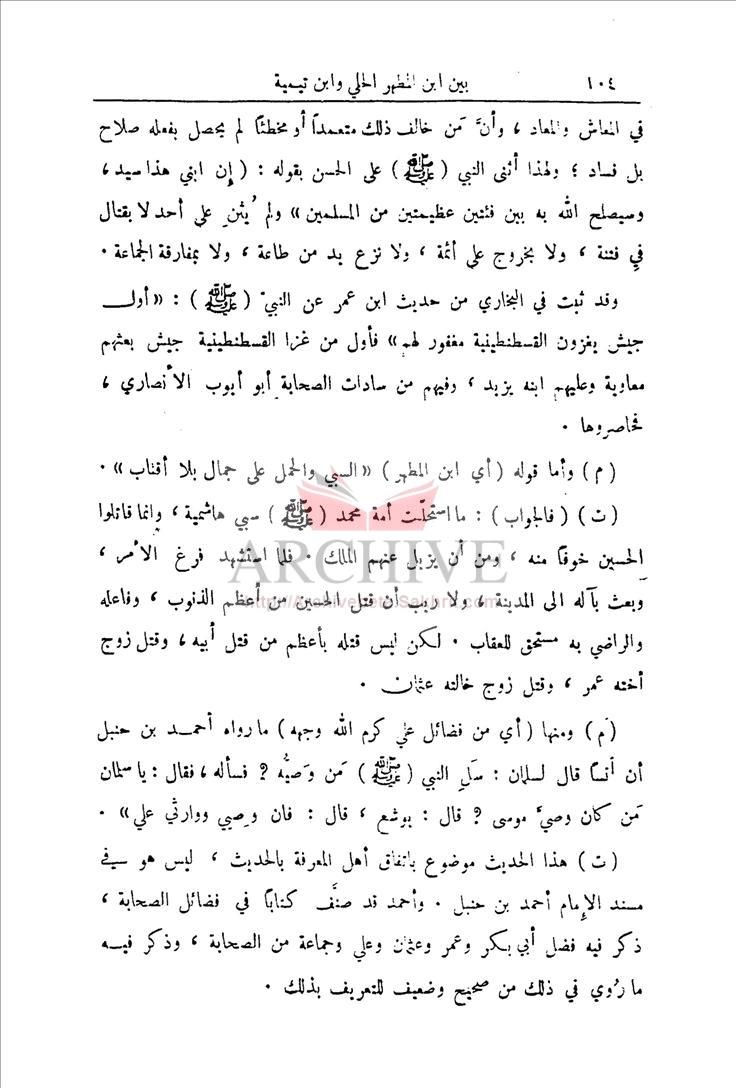 ١٠٤ بين ابن المطهر الحلي وابن تيمية
في المعاش والمعاد ، وأنَّ مَن خالف ذلك متعمداً أو مخطئاً لم يحصل بفعله صلاح
بل فساد ؛ ولهذا أثنى النبي ( ﷺ ) على الحسن بقوله : ( إن ابني هذا سيد ،
وسيصلح الله به بين فئتين عظيمتين من المسلمين » ولم يُثنِ على أحد لا بقتال
في فتنة ، ولا بخروج على أئمة ، ولا نزع يد من طاعة ، ولا بمفارقة الجماعة .
وقد ثبت في البخاري من حديث ابن عمر عن النبيّ ( ﷺ ) : « أول
جيش يغزون القسطنطينية مغفور لهم » فأول من غزا القسطنطينية جيش بعثهم
معاوية وعليهم ابنه يزيد ، وفيهم من سادات الصحابة أبو أيوب الأنصاري ،
فحاصروها .
( م ) وأما قوله ( أي ابن المطهر ) « السبي والحمل على جمال بلا أقتاب » .
( ت ) ( فالجواب ) : ما استحلّت أمة محمد ( ﷺ ) سبي هاشمية ، وإنما قاتلوا
الحسين خوفاً منه ، ومن أن يزيل عنهم الملك . فلما استشهد فرغ الأمر ،
ARCHIVE
وبعث بآله الى المدينة ، ولا ريب أن قتل الحسين من أعظم الذنوب ، وفاعله
http://Archivebeta.Sakhrit.com
والراضي به مستحق للعقاب . لكن ليس قتله بأعظم من قتل أبيه ، وقتل زوج
أخته عمر ، وقتل زوج خالته عثمان .
( م ) ومنها ( أي من فضائل علي كرم الله وجهه ) ما رواه أحمد بن حنبل
أن أنساً قال لسلمان : سَلِ النبي ( ﷺ ) مَن وَصيُّه ? فسأله ، فقال : يا سلمان
مَن كان وصيَّ موسى ? قال : يوشع ، قال : فان وصيي ووارثي علي » .
( ت ) هذا الحديث موضوع باتفاق أهل المعرفة بالحديث ، ليس هو في
مسند الإمام أحمد بن حنبل . وأحمد قد صنَّف كتاباً في فضائل الصحابة ،
ذكر فيه فضل أبي بكر وعمر وعثمان وعلي وجماعة من الصحابة ، وذكر فيه
ما رُوي في ذلك من صحيح وضعيف للتعريف بذلك .